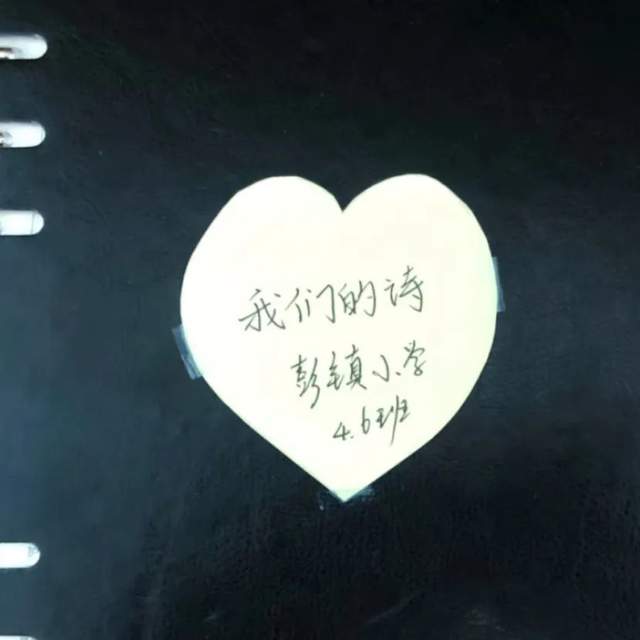 我们的诗
彭镇小学
4.6班